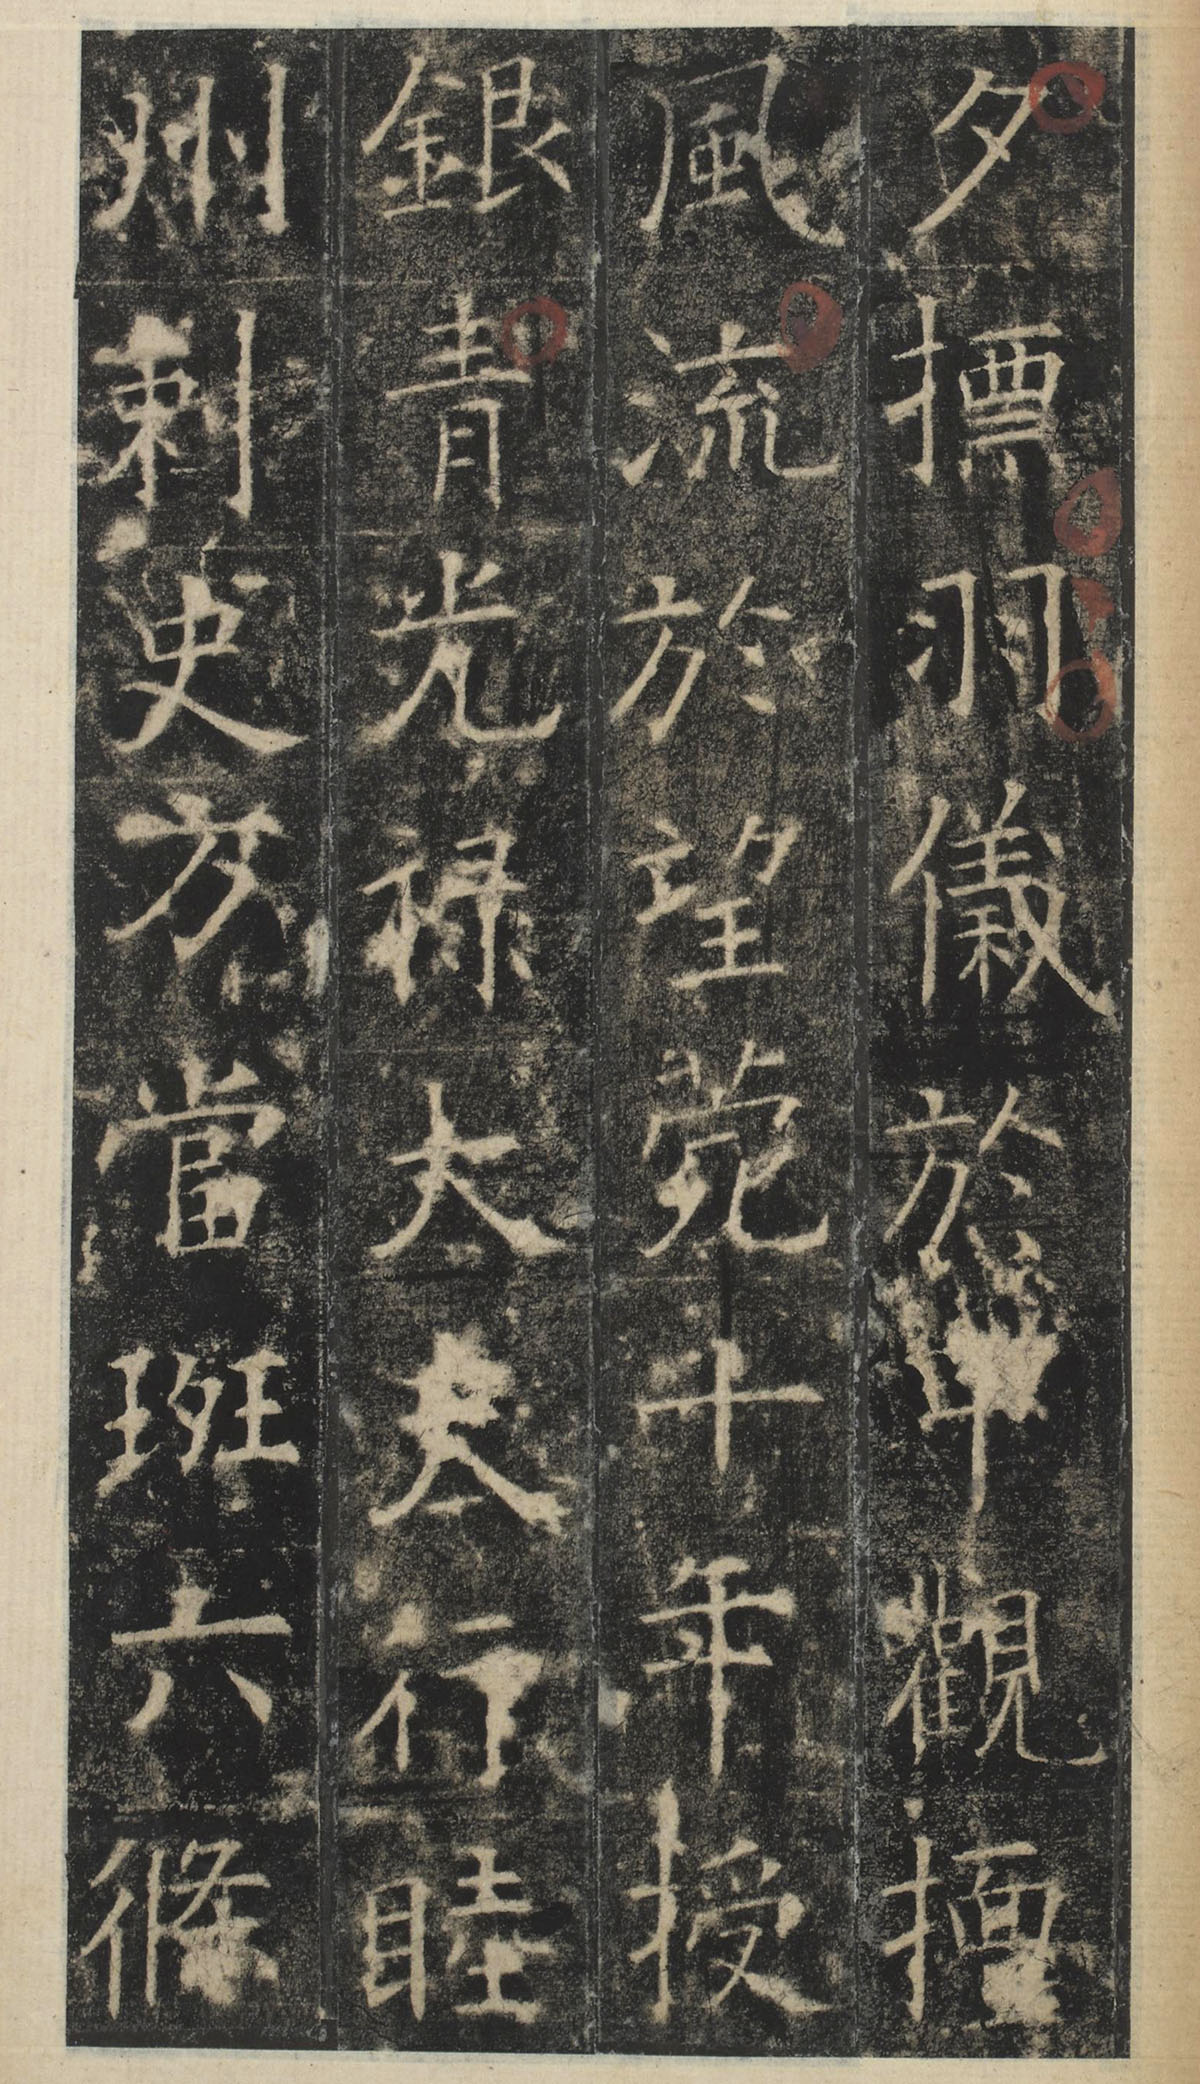 夕摽羽儀於甲觀擅
風流於望菀十年授
銀青光禄大夫行睦
州刺史方當班六條